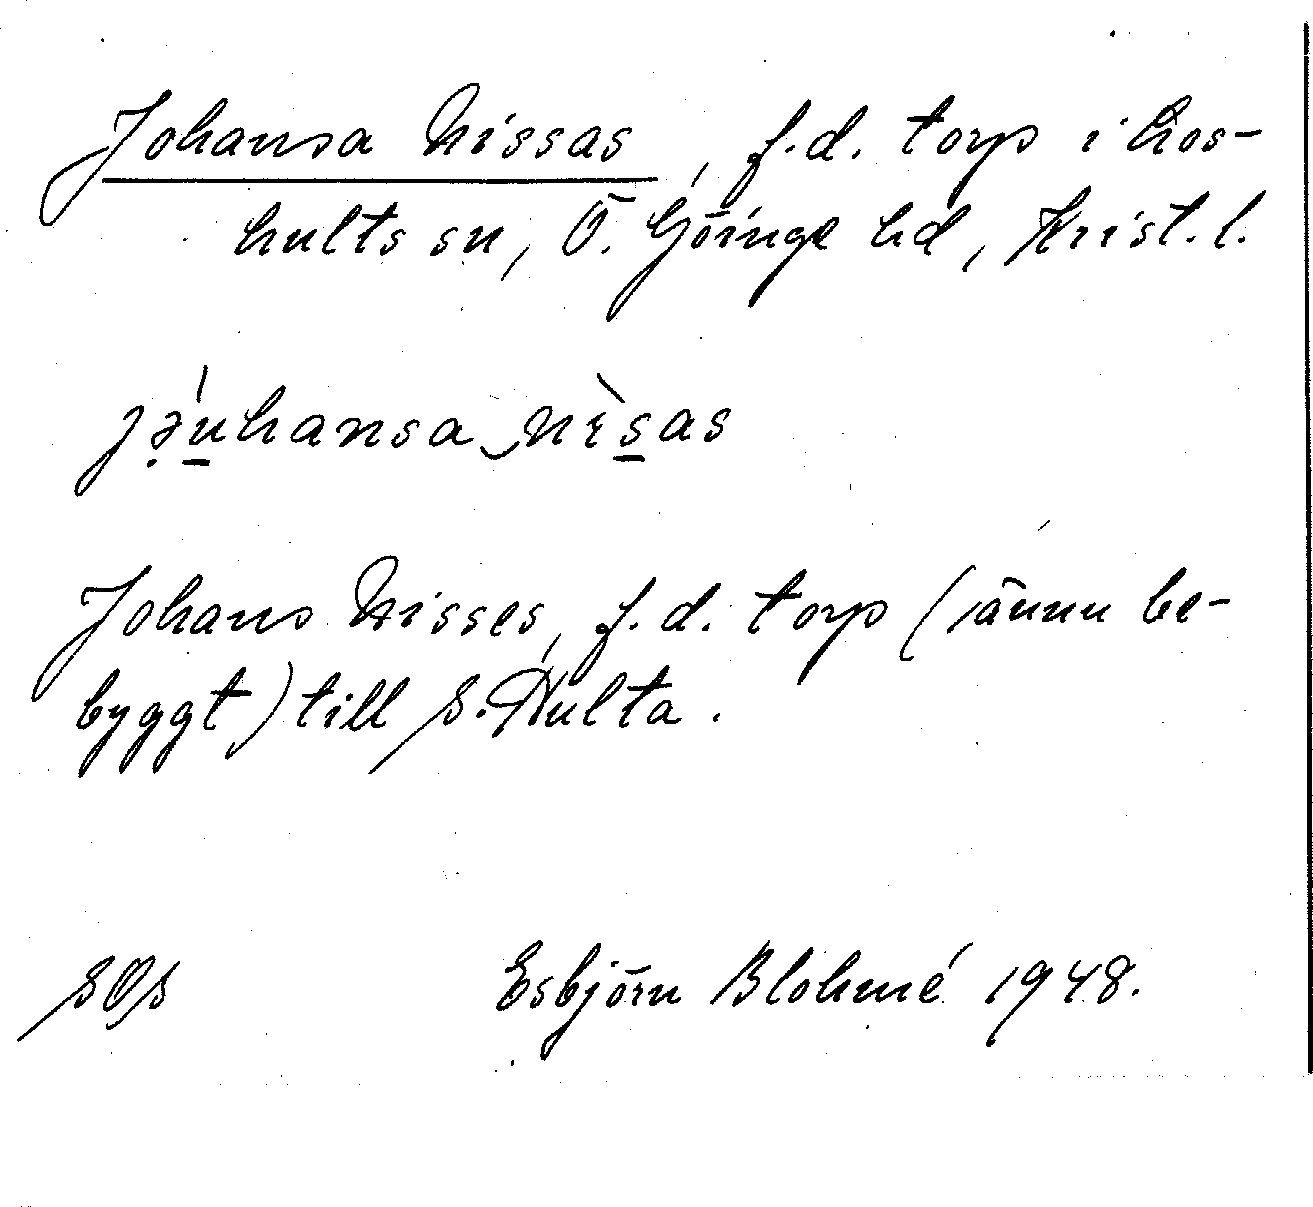 Johansa Nissas, f.d. torp i Los-
hults sn, Ö. Göinge hd, Krist. l.
jə̣́u̲hansa‿nɪ̀s̲as
Johans Nisses, f.d. torp (ännu be-
byggt) till S. Hulta.
SOS Esbjörn Blohmé 1948.